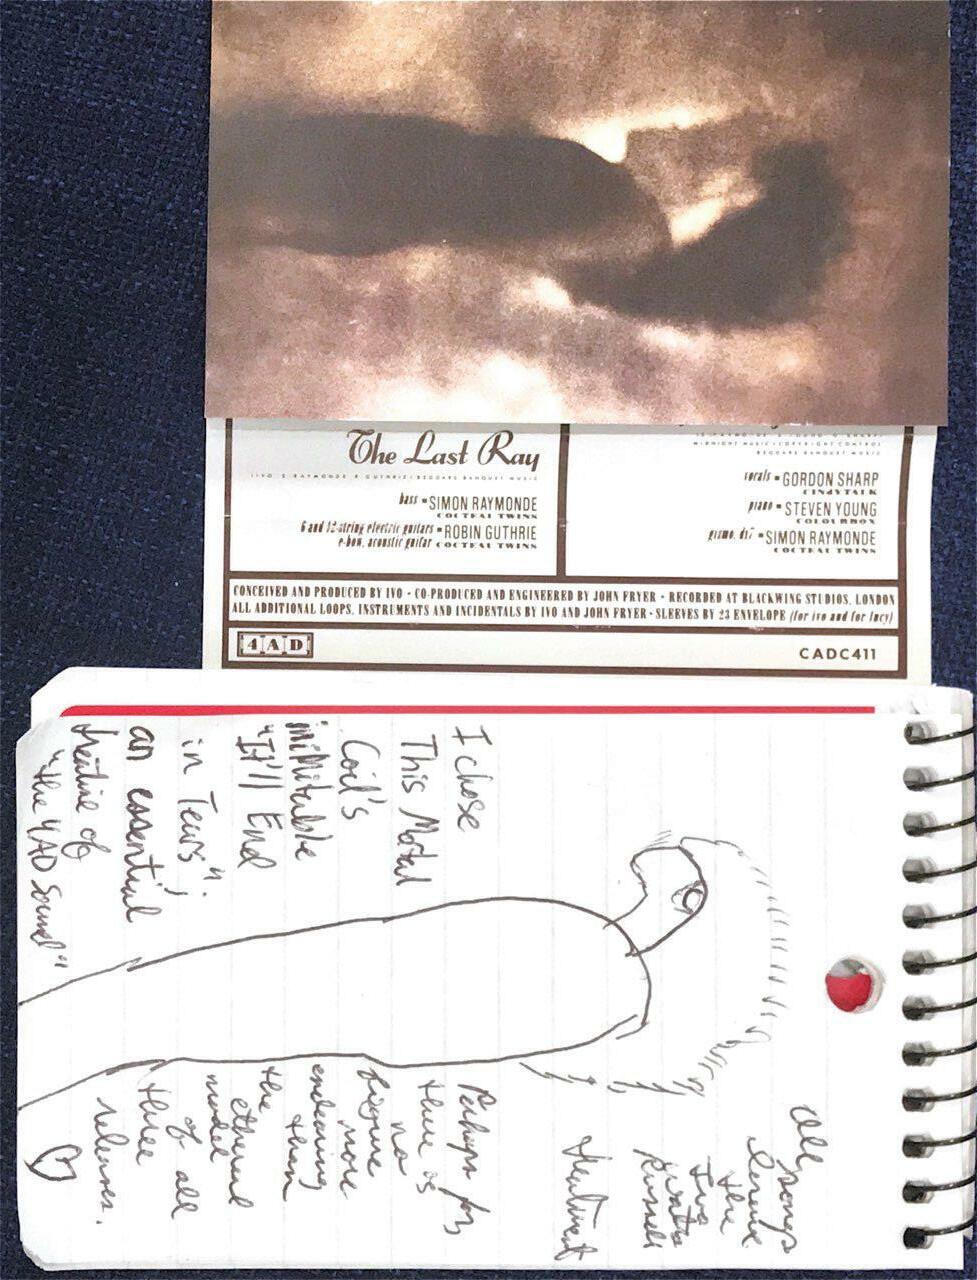 The Last Ray
bass ▪ SIMON RAYMONDE
COCTEAU TWINS
6 and 12-string electric guitars ▪ ROBIN GUTHRIE
e-bow, acoustic guitar COCTEAU TWINS
MIDNIGHT MUSIC / COPYRIGHT CONTROL
BEGGARS BANQUET MUSIC
vocals ▪ GORDON SHARP
CINDYTALK
piano ▪ STEVEN YOUNG
COLOURBOX
gizmo, dx7 ▪ SIMON RAYMONDE
COCTEAU TWINS
CONCEIVED AND PRODUCED BY IVO · CO-PRODUCED AND ENGINEERED BY JOHN FRYER · RECORDED AT BLACKWING STUDIOS, LONDON
ALL ADDITIONAL LOOPS, INSTRUMENTS AND INCIDENTALS BY IVO AND JOHN FRYER · SLEEVES BY 23 ENVELOPE (for ivo and for lucy)
4AD
CADC411
I chose
This Mortal
Coil's
inimitable
"It'll End
in Tears";
an essential
treatise of
"the 4AD Sound"
All
songs
receive
the
Ivo
Watts
Russell
treatment
Perhaps for
there is
no
figure
more
endearing
than
the
ethereal
model
of all
three
releases.